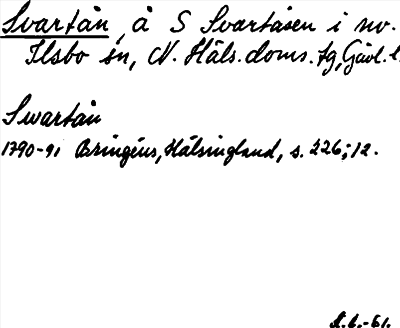 Svartån, å S Svartåsen i nv.
Ilsbo sn, N. Häls. doms. tg, Gävl. l.
Swartån
1790-91 Bringéus, Hälsingland, s. 226; 12.